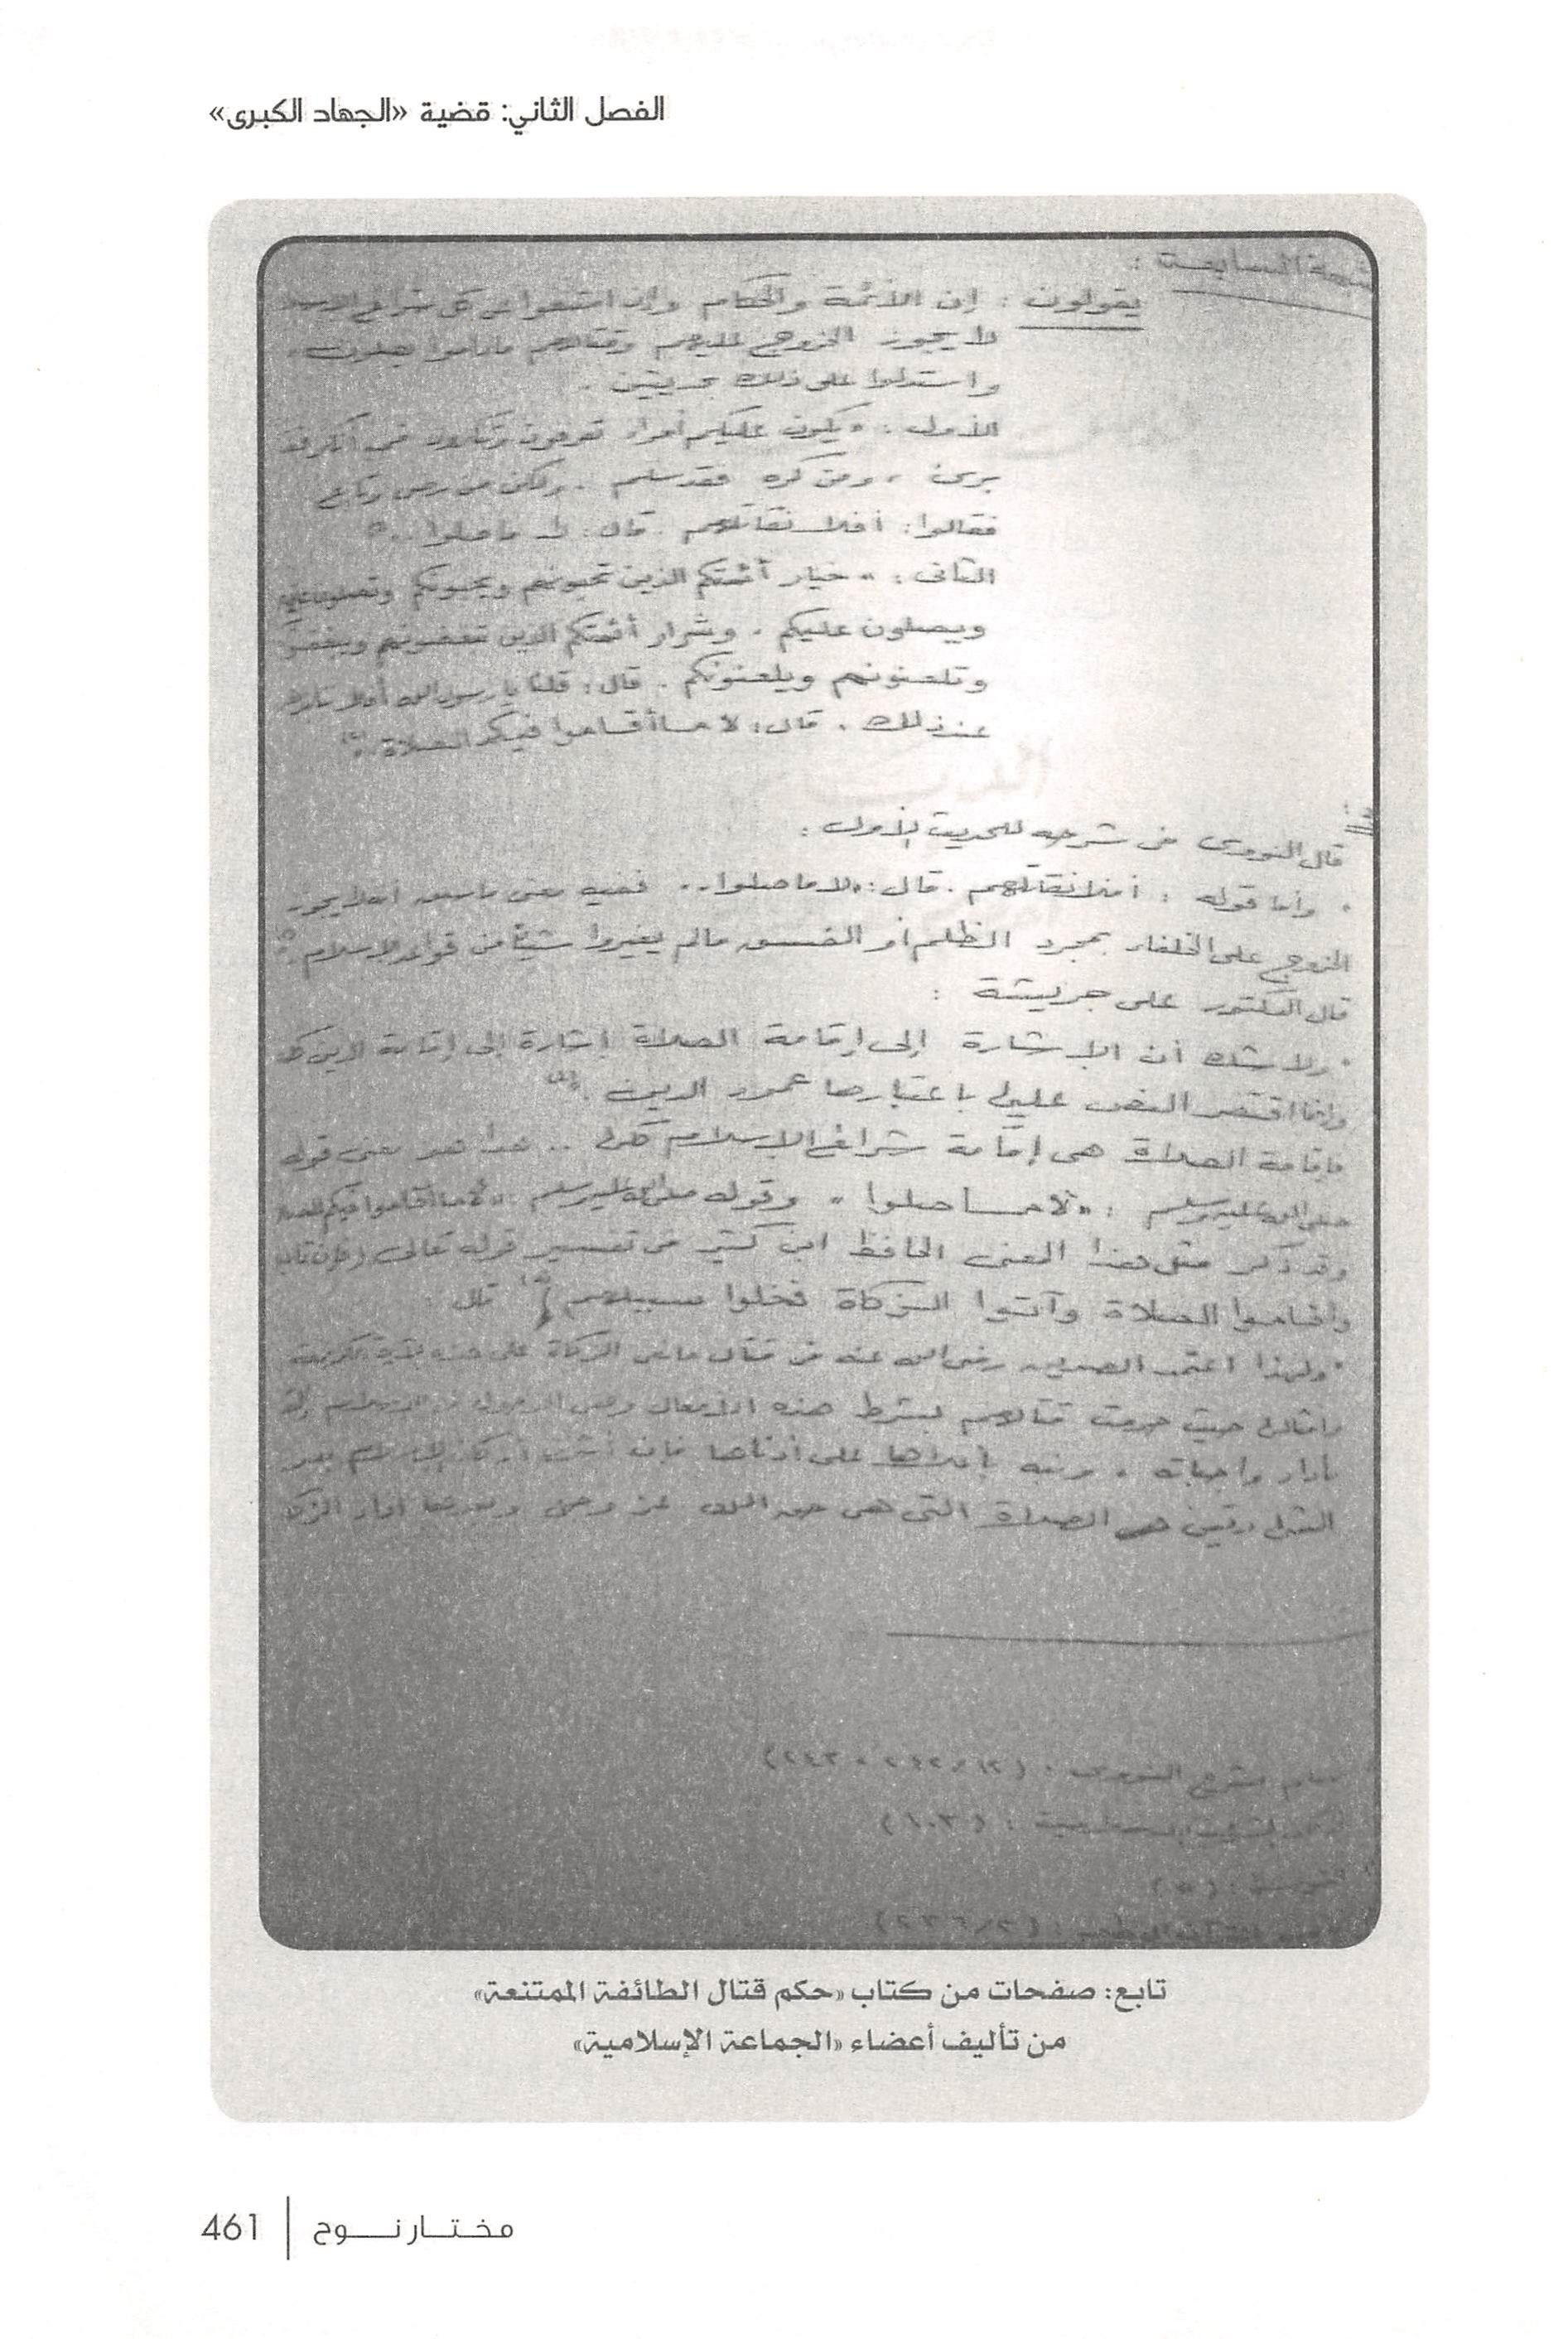 الفصل الثاني: قضية «الجهاد الكبرى»
السابعة :
يقولون : إن الأئمة والحكام وإن امتنعوا عن كل شرائع الإسلا
لا يجوز الخروج عليهم وقتالهم ماداموا يصلون .
واستدلوا على ذلك بحديثين .
الأول : " يكون عليكم أمراء تعرفون وتنكرون فمن أنكر فقد
برئ ، ومن كره فقد سلم . ولكن من رضى وتابع
فقالوا : أفلا نقاتلهم . قال : لا ما صلوا .. "
الثانى : " خيار أئمتكم الذين تحبونهم ويحبونكم وتصلون عليهم
ويصلون عليكم . وشرار أئمتكم الذين تبغضونهم ويبغضون
وتلعنونهم ويلعنونكم . قال : قلنا يا رسول الله أفلا ننابذهم
عند ذلك . قال : لا ما أقاموا فيكم الصلاة . "
قال النووى فى شرحه للحديث الأول :
" وأما قوله : أفلا نقاتلهم . قال : " لا ما صلوا .. ففيه معنى ما سبق أنه لا يجوز
الخروج على الخلفاء بمجرد الظلم أو الفسق مالم يغيروا شيئاً من قواعد الإسلام . "
قال الدكتور على جريشة :
" ولا شك أن الإشارة إلى إقامة الصلاة إشارة إلى إقامة الدين كله
وإنما اقتصر النص عليها باعتبارها عمود الدين . "
فإقامة الصلاة هى إقامة شرائع الإسلام كلها .. هذا هو معنى قوله
صلى الله عليه وسلم : " لا ما صلوا " وقوله صلى الله عليه وسلم " لا ما أقاموا فيكم الصلا
وقد ذكر مثل هذا المعنى الحافظ ابن كثير فى تفسير قوله تعالى ( فإن تابوا
وأقاموا الصلاة وآتوا الزكاة فخلوا سبيلهم } قال :
" ولهذا اعتمد الصديق رضى الله عنه فى قتال مانعى الزكاة على هذه الآية الكريمة
وأمثالها حيث حرمت قتالهم بشرط هذه الأفعال وهى الدخول فى الإسلام
بأداء واجباته . ونبه بأعلاها على أدناها فإن أشرف أركان الإسلام بعد
الشهادتين هى الصلاة التى هى حق الله عز وجل وبعدها أداء الزكا
مسلم بشرح النووى : (١٢/٢٤٢ ، ٢٤٣)
(١٠٣)
التوبة : (٥)
(٢/٣٣٦)
تابع: صفحات من كتاب «حكم قتال الطائفة الممتنعة»
من تأليف أعضاء «الجماعة الإسلامية»
مختار نوح | 461